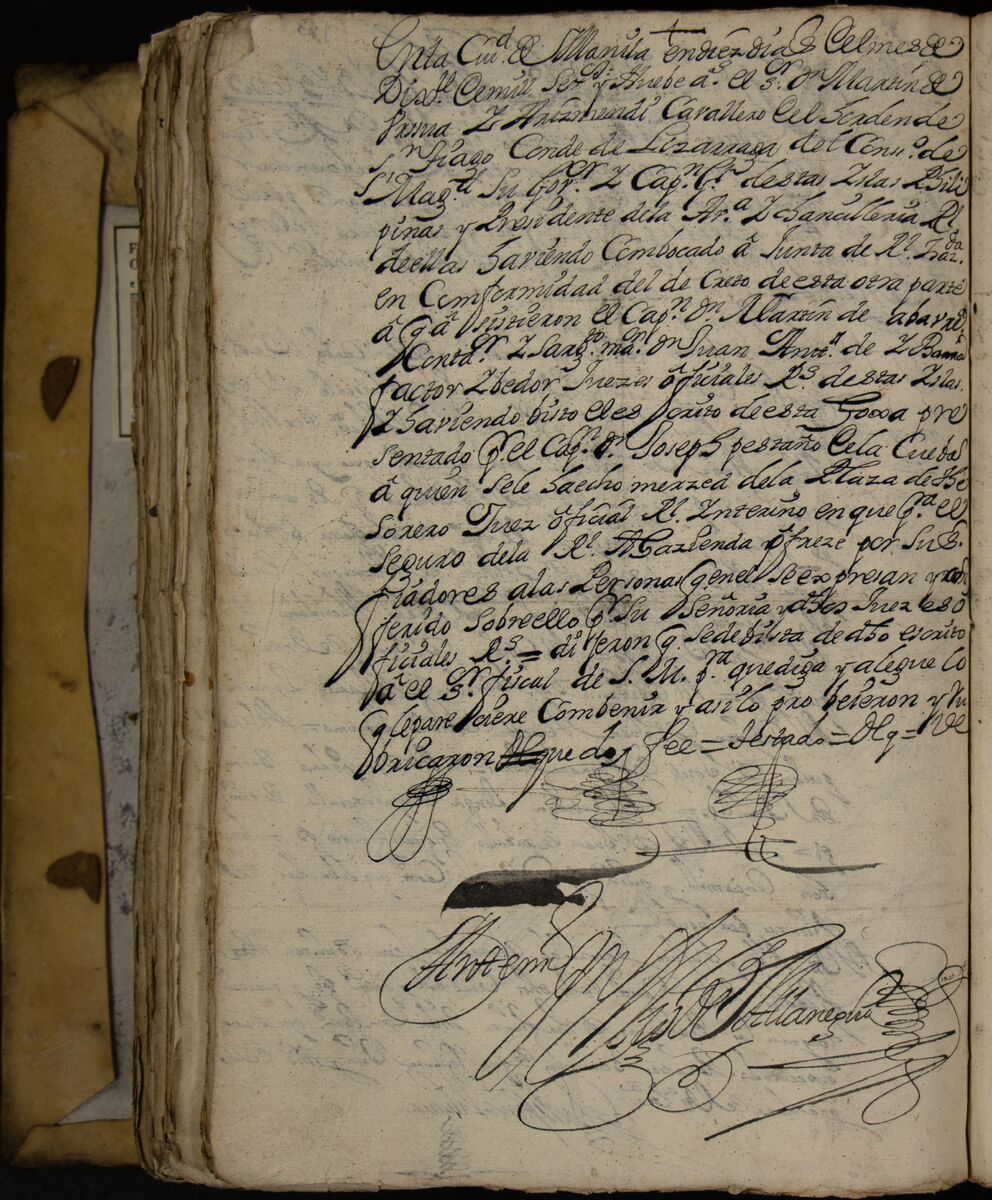 En la Ciud. de Manila en diez dias del mes de
Dizre. de mill Sets. y Nuebe as. el sor. Dn Martin de
Vrsua Y Arismendi Cavallero del horden de
sn tiago Conde de Lizarraga del Conso. de
S. Magd. Su Gor. Y Capn. Gl. destas Yslas Phili
pinas y Presidente dela Ara. Y chancilleria Rl.
deellas haviendo Combocado â Junta de Rl. hazda.
en Comformidad del de Creto deesta otra parte
â q. âsistieron el Capn. Dn. Martin de abarre
Contor. Y Sargto. mor. Dn Juan Anto. de Y Barra
factor Y bedor Juezes ôficiales Rs. destas Yslas.
Y haviendo bisto el es crito deesta foxa pre
sentado pr. el Capn. Dn. Joseph pestaño de la Cueba
â quien sele ha echo merzed dela Plaza de the
sorero Juez ôficial Rl. Ynterino en que pa. el
seguro dela Rl. Hazienda ôfreze por sus.
fiadores alas Personas q enel se expresan y con
ferido sobreello pr. su Señoria y dhos Juezes ô
ficiales Rs. = dijeron q. sede bista de dho escrito
â el sor. fiscal de S. M. pa. quediga y alegue lo
q lepare ciere Combenir y asi lo pro beieron y ru
bricaron que doy fee = testado =
Ante mi